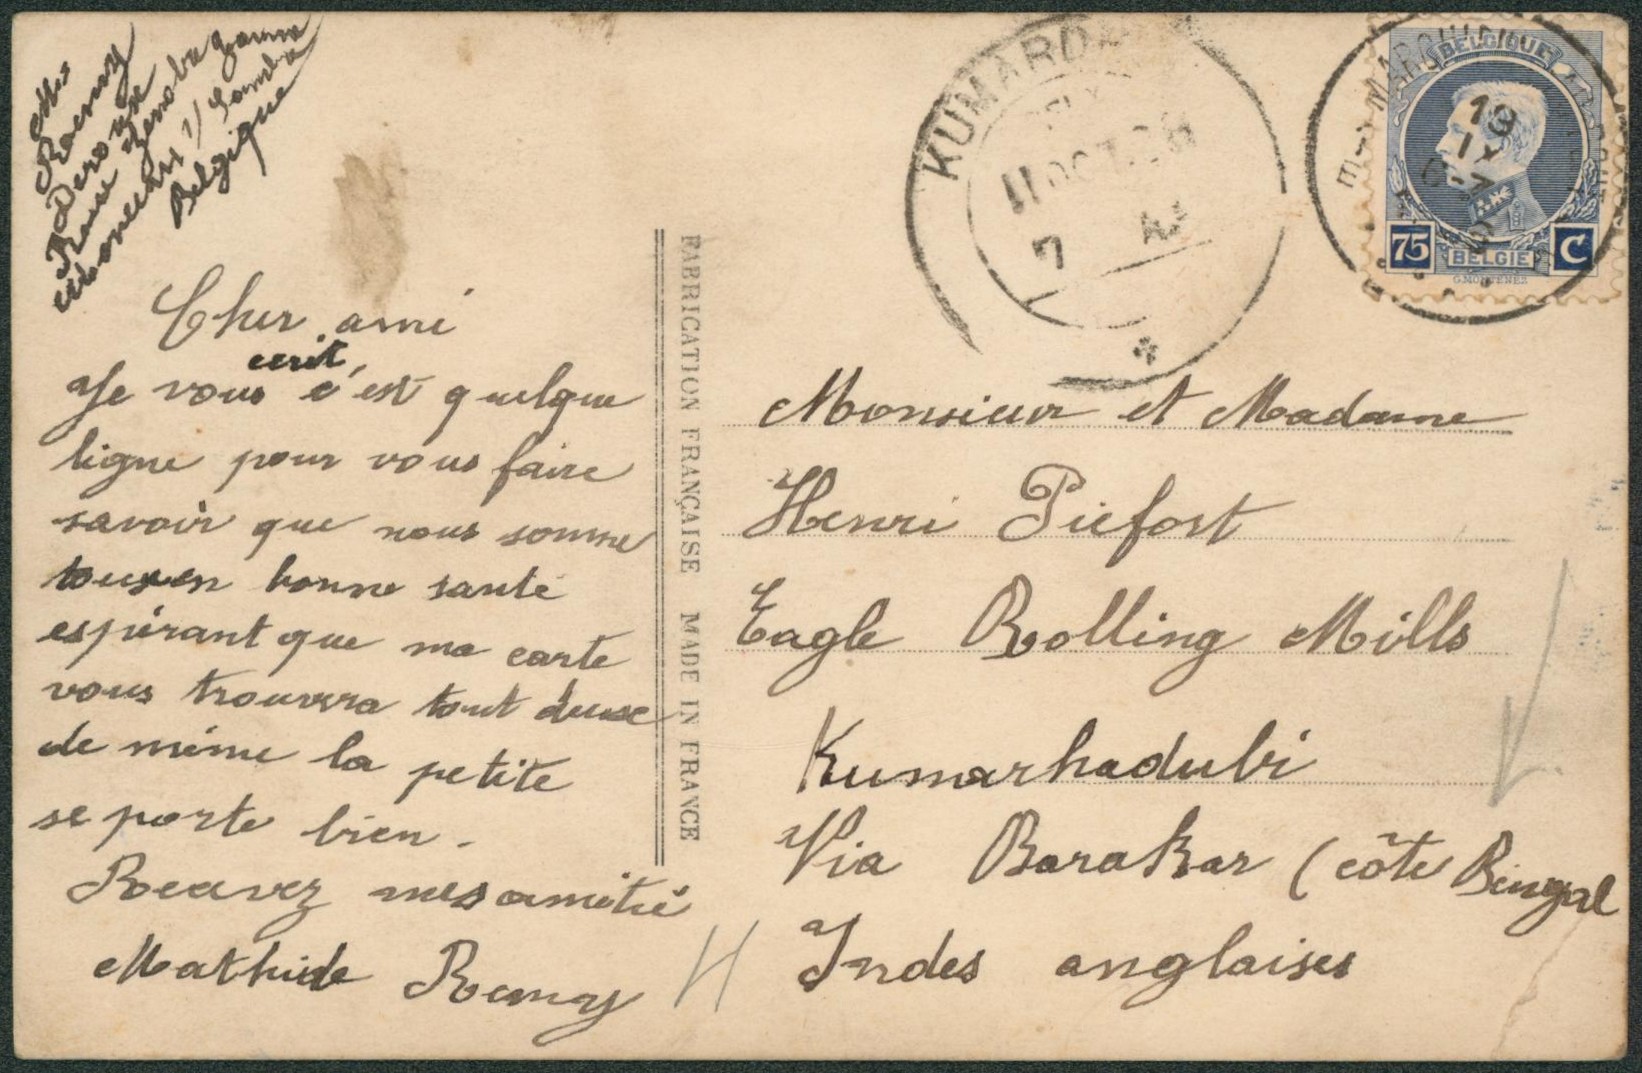 Mr
Remy
Derouxe
Rue
Belgique
Cher ami
Je vous ecrit c'est quelque
ligne pour vous faire
savoir que nous somme
tous en bonne santé
espérant que ma carte
vous trouvera tout deuse
de même la petite
se porte bien.
Recevez mes amitié
Mathilde Remy
FABRICATION FRANÇAISE MADE IN FRANCE
KUMARD
11 OCT. 26
7
BELGIQUE
75 BELGIE C
Monsieur et Madame
Henri Piefort
Eagle Rolling Mills
Kumarhadubi
Via Barakar (côte Bengal
Indes anglaises